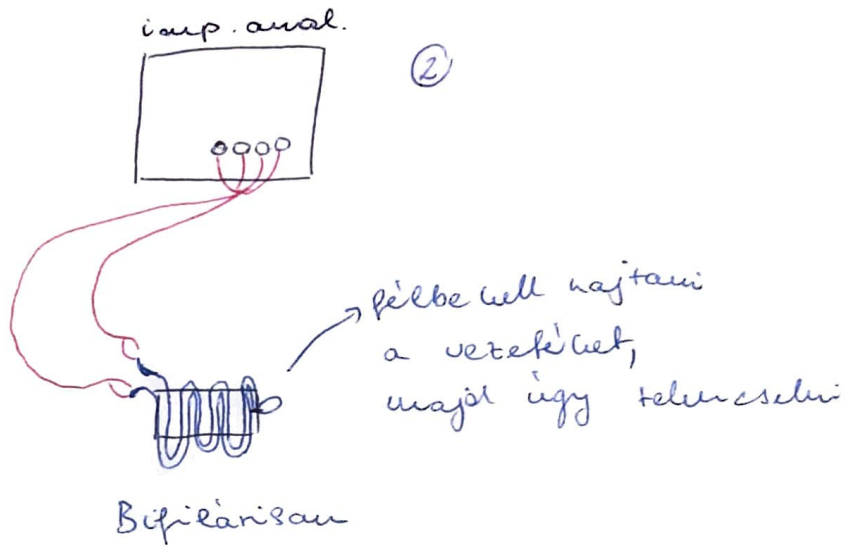 imp. anal.
②
félbe kell hajtani
a vezetéket,
majd úgy tekercselni
Bifilárisan